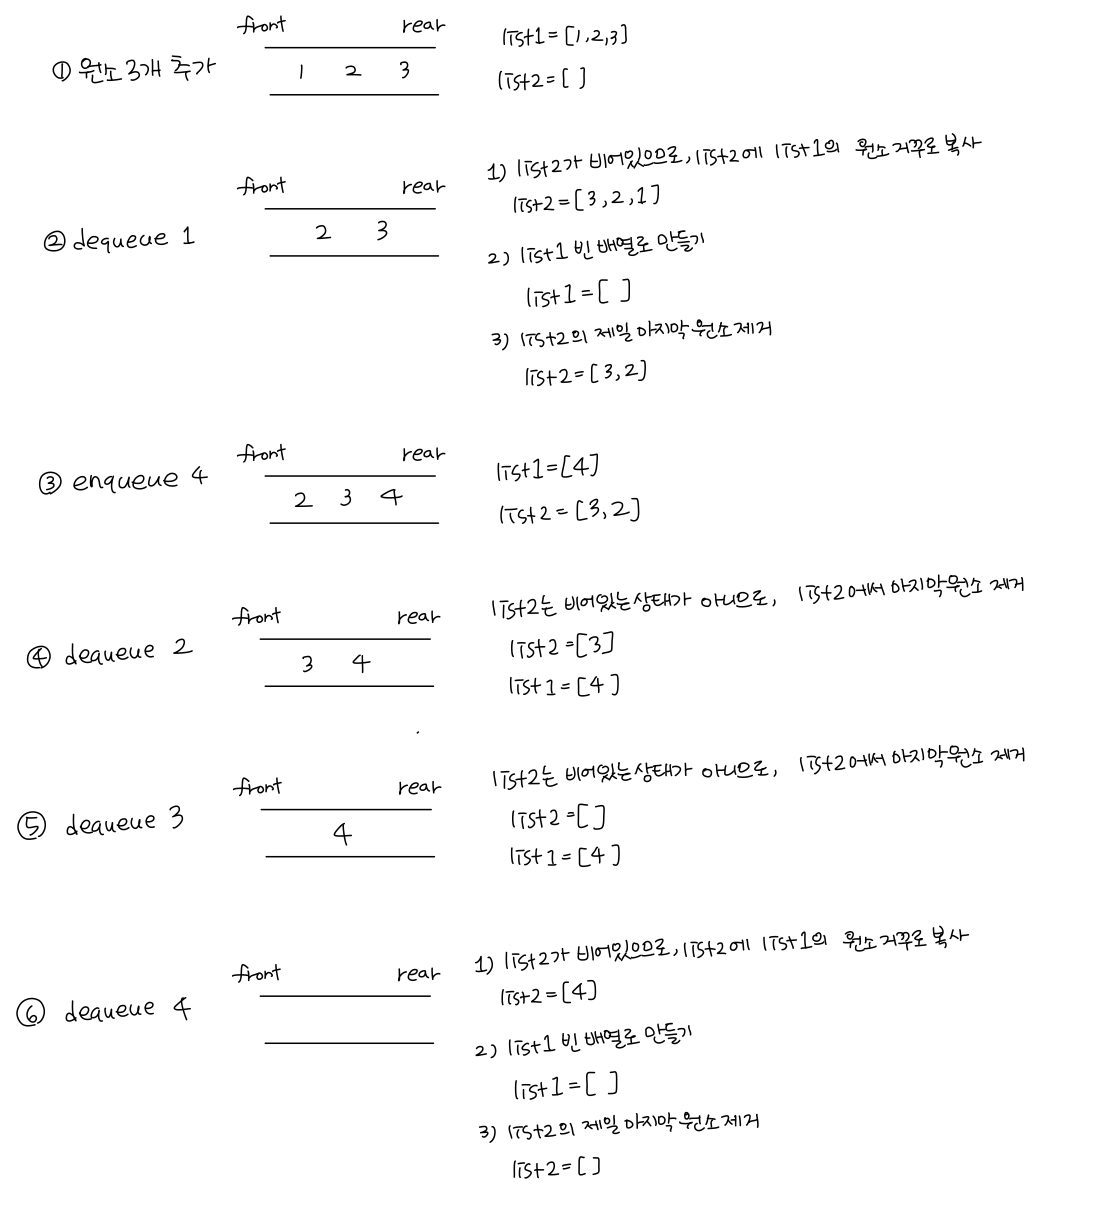 front rear
① 원소 3개 추가 1 2 3
list1 = [1,2,3]
list2 = [ ]
front rear
② dequeue 1 2 3
1) list2가 비어있으므로, list2에 list1의 원소 거꾸로 복사
list2 = [3,2,1]
2) list1 빈 배열로 만들기
list1 = [ ]
3) list2의 제일 마지막 원소 제거
list2 = [3,2]
front rear
③ enqueue 4 2 3 4
list1 = [4]
list2 = [3,2]
front rear
④ dequeue 2 3 4
list2는 비어있는 상태가 아니므로, list2에서 마지막 원소 제거
list2 = [3]
list1 = [4]
front rear
⑤ dequeue 3 4
list2는 비어있는 상태가 아니므로, list2에서 마지막 원소 제거
list2 = [ ]
list1 = [4]
front rear
⑥ dequeue 4
1) list2가 비어있으므로, list2에 list1의 원소 거꾸로 복사
list2 = [4]
2) list1 빈 배열로 만들기
list1 = [ ]
3) list2의 제일 마지막 원소 제거
list2 = [ ]